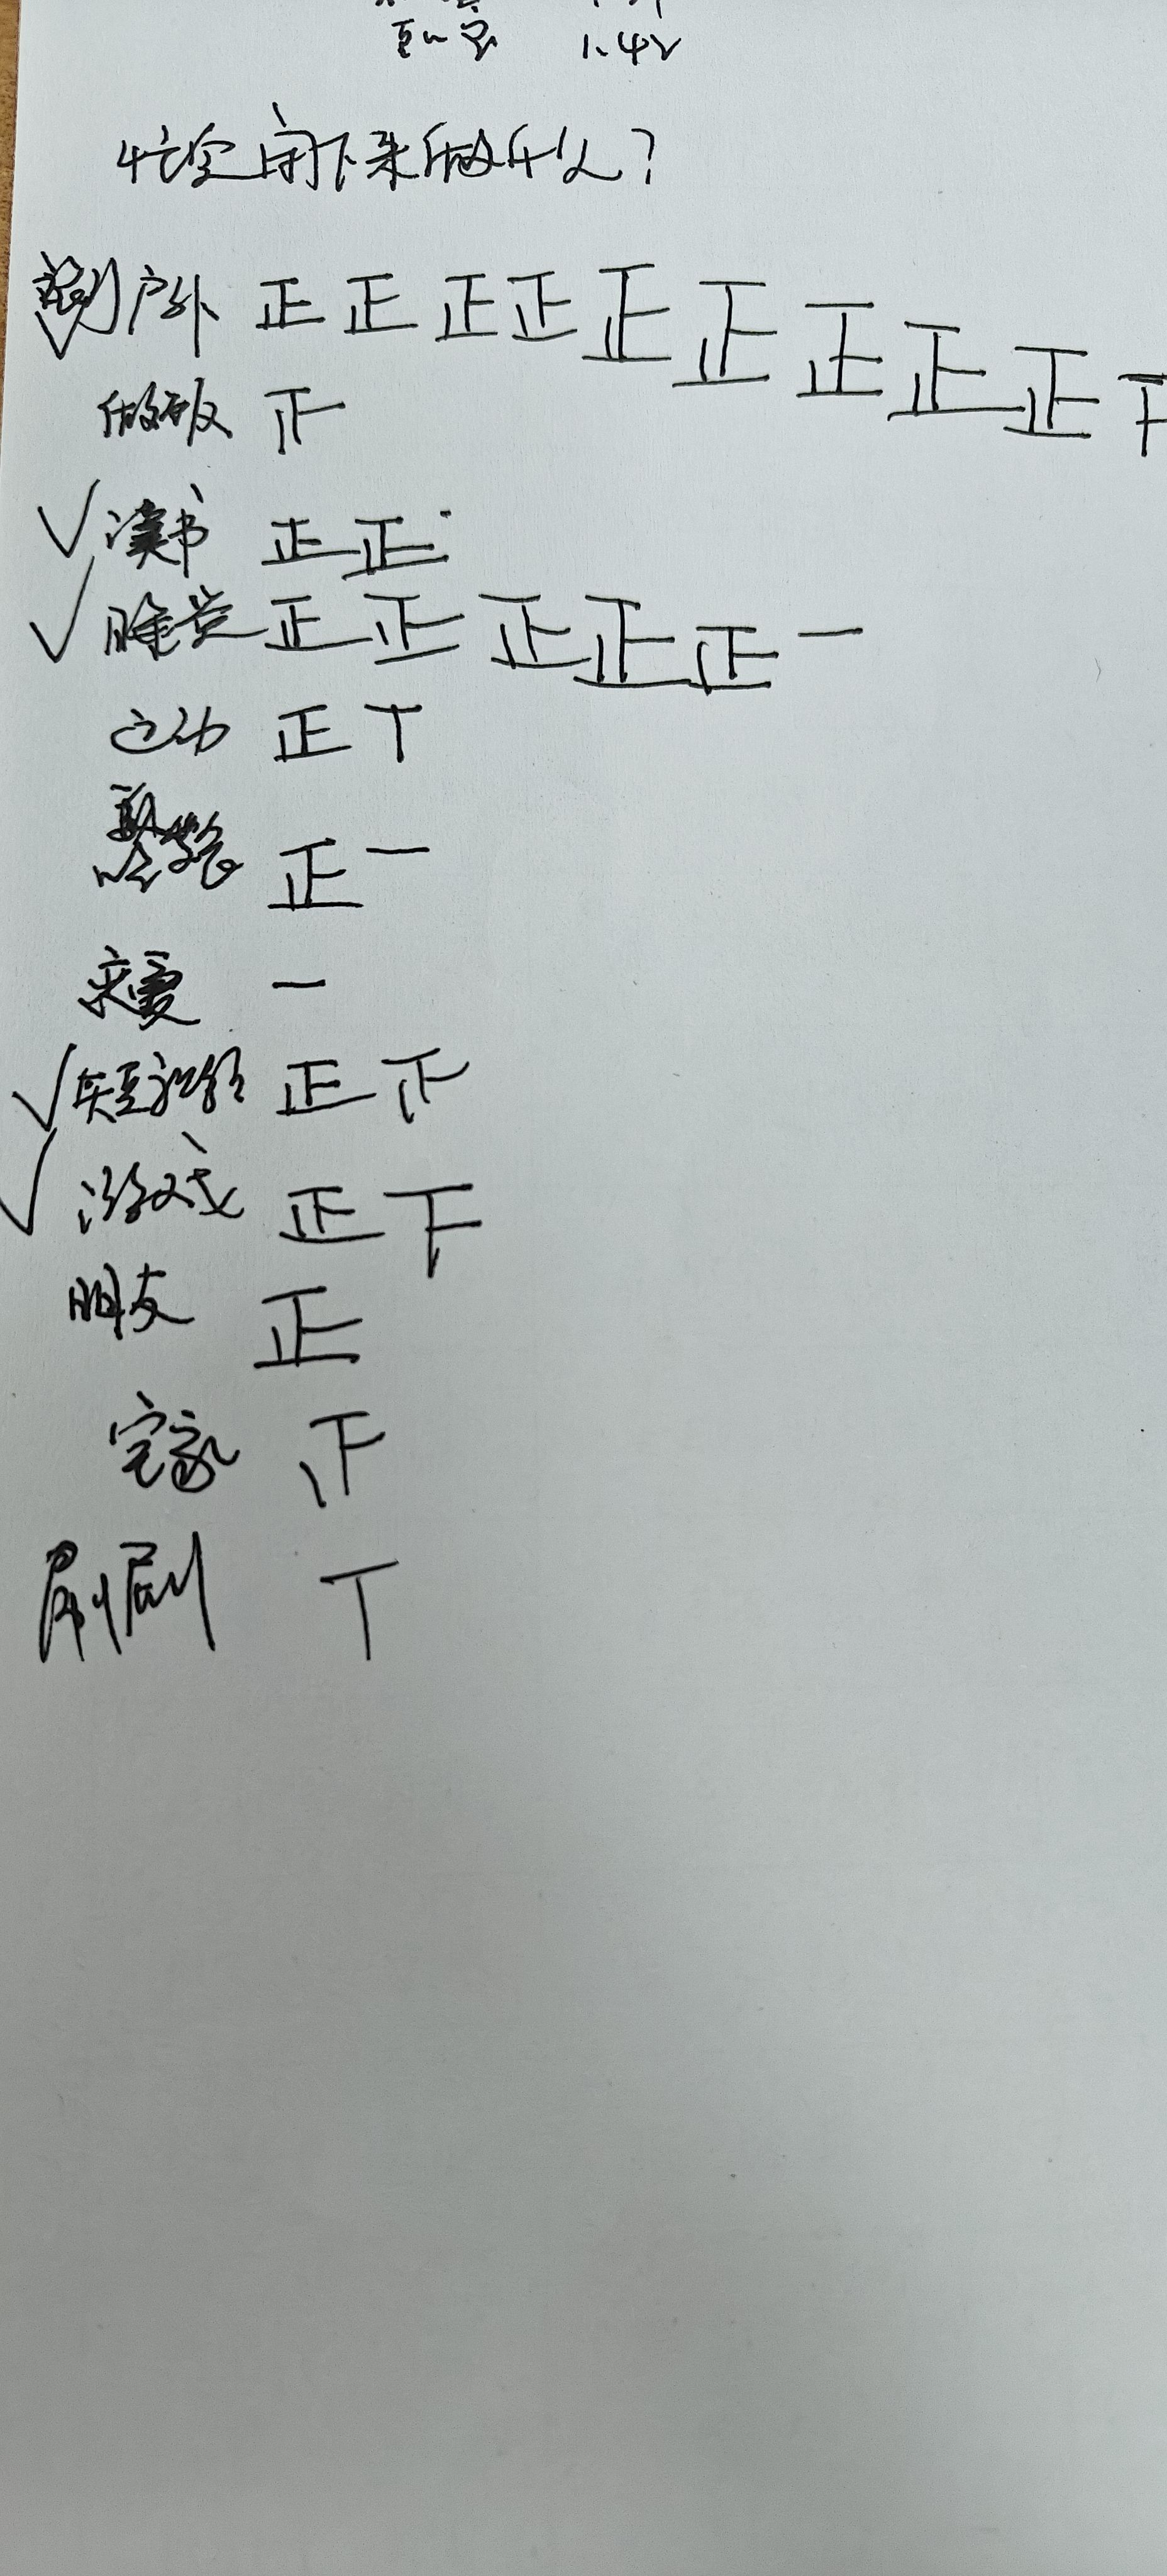 1.42
忙完闲下来做什么?
户外 正 正 正 正 正 正 正 正 正 下
做饭
读书 正 正
睡觉 正 正 正 正 正 一
运动 正 丅
正 一
求爱 一
短视频 正
游戏 正 下
朋友 正
宅家
刷剧 丅